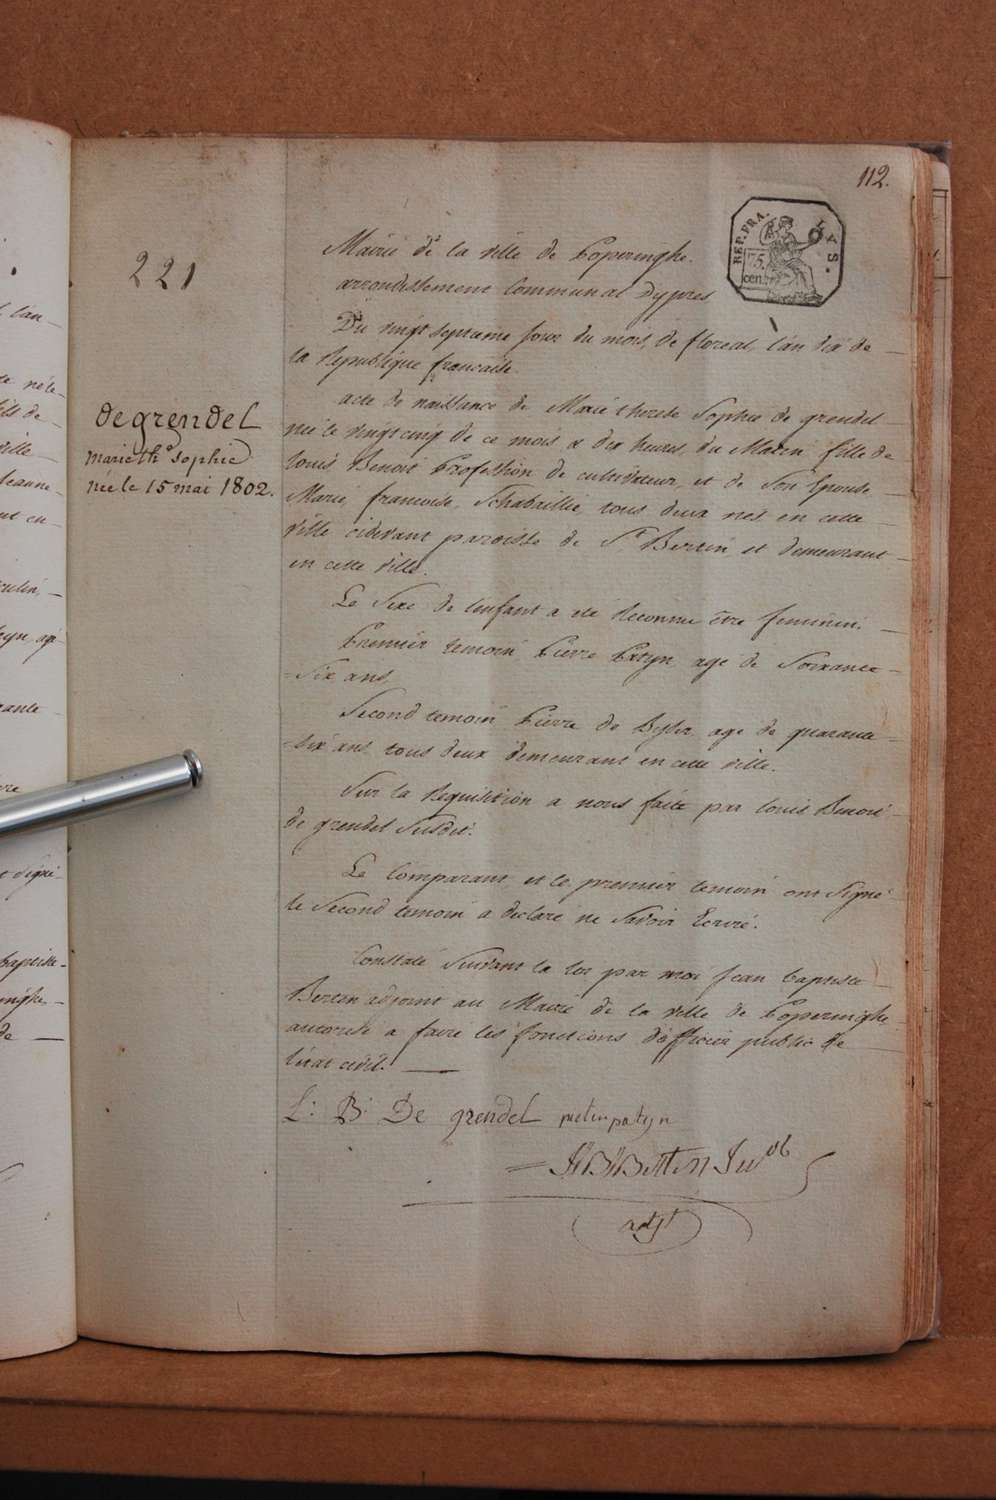 112.
REP. FRA.
LYS.
75
cen.
221
Mairie de la ville de Poperinghe.
arrondissement Communal dypres
Du vingt septieme jour du mois, de floreal, l'an dix de
la Republique francaise
degrendel
marie th.e sophie
née le 15 mai 1802.
acte de naissance de Marie therese Sophie de grendel
née le vingt cinq de ce mois a dix heures, du Matin fille de
Louis, Benoit Profession de cultivateur, et de Son Epouse
Marie, francoise, Schabaillie, tous deux nés en cette
ville cidevant paroisse de St. Bertin et demeurant
en cette ville.
Le Sexe de lenfant a été Reconnu être feminin.
Premier temoin Pierre Patyn agé de Soixante
Six ans
Second temoin Pierre de agé de quarante
six ans tous deux demeurant en cette ville.
Sur la Requisition a nous faite par Louis Benoit
de grendel Susdit.
Le Comparant, et le, premier temoin ont Signé
le Second temoin a declaré ne Savoir Ecrire.
Constaté Suivant la loi par moi Jean baptiste
Berten adjoint au Maire de la ville de Poperinghe
autorisé a faire les fonctions d'officier public de
l'etat civil.
L: B: De grendel patyn
Berten
adjt